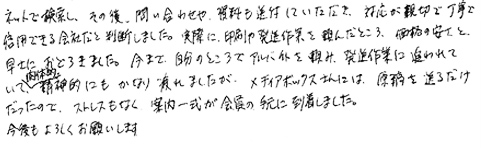 ネットで検索し、その後、問い合わせや、資料も送付していただき、対応が親切で丁寧で
信用できる会社だと判断しました。実際に、印刷や発送作業を頼んだところ、価格の安さと、
早さに おどろきました。今まで、自分のところでアルバイトを頼み、発送作業に追われて
いて、肉体的精神的にもかなり疲れましたが、メディアボックスさんには、原稿を送るだけ
だったので、ストレスもなく 案内一式が会員の手元に到着しました。
今後もよろしくお願いします